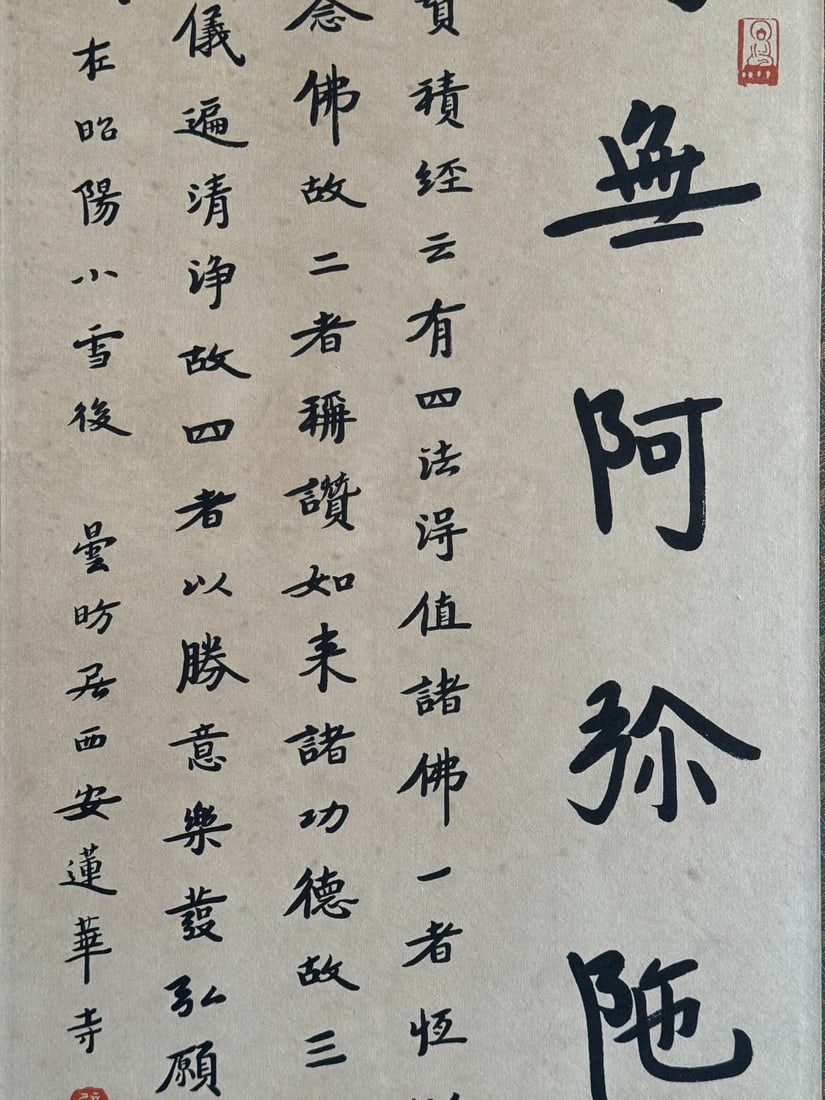 無阿弥陀
積経云有四法得值諸佛一者恆
念佛故二者稱讚如来諸功德故三
儀遍清淨故四者以勝意樂發弘願
在昭陽小雪後 曇昉居西安蓮華寺